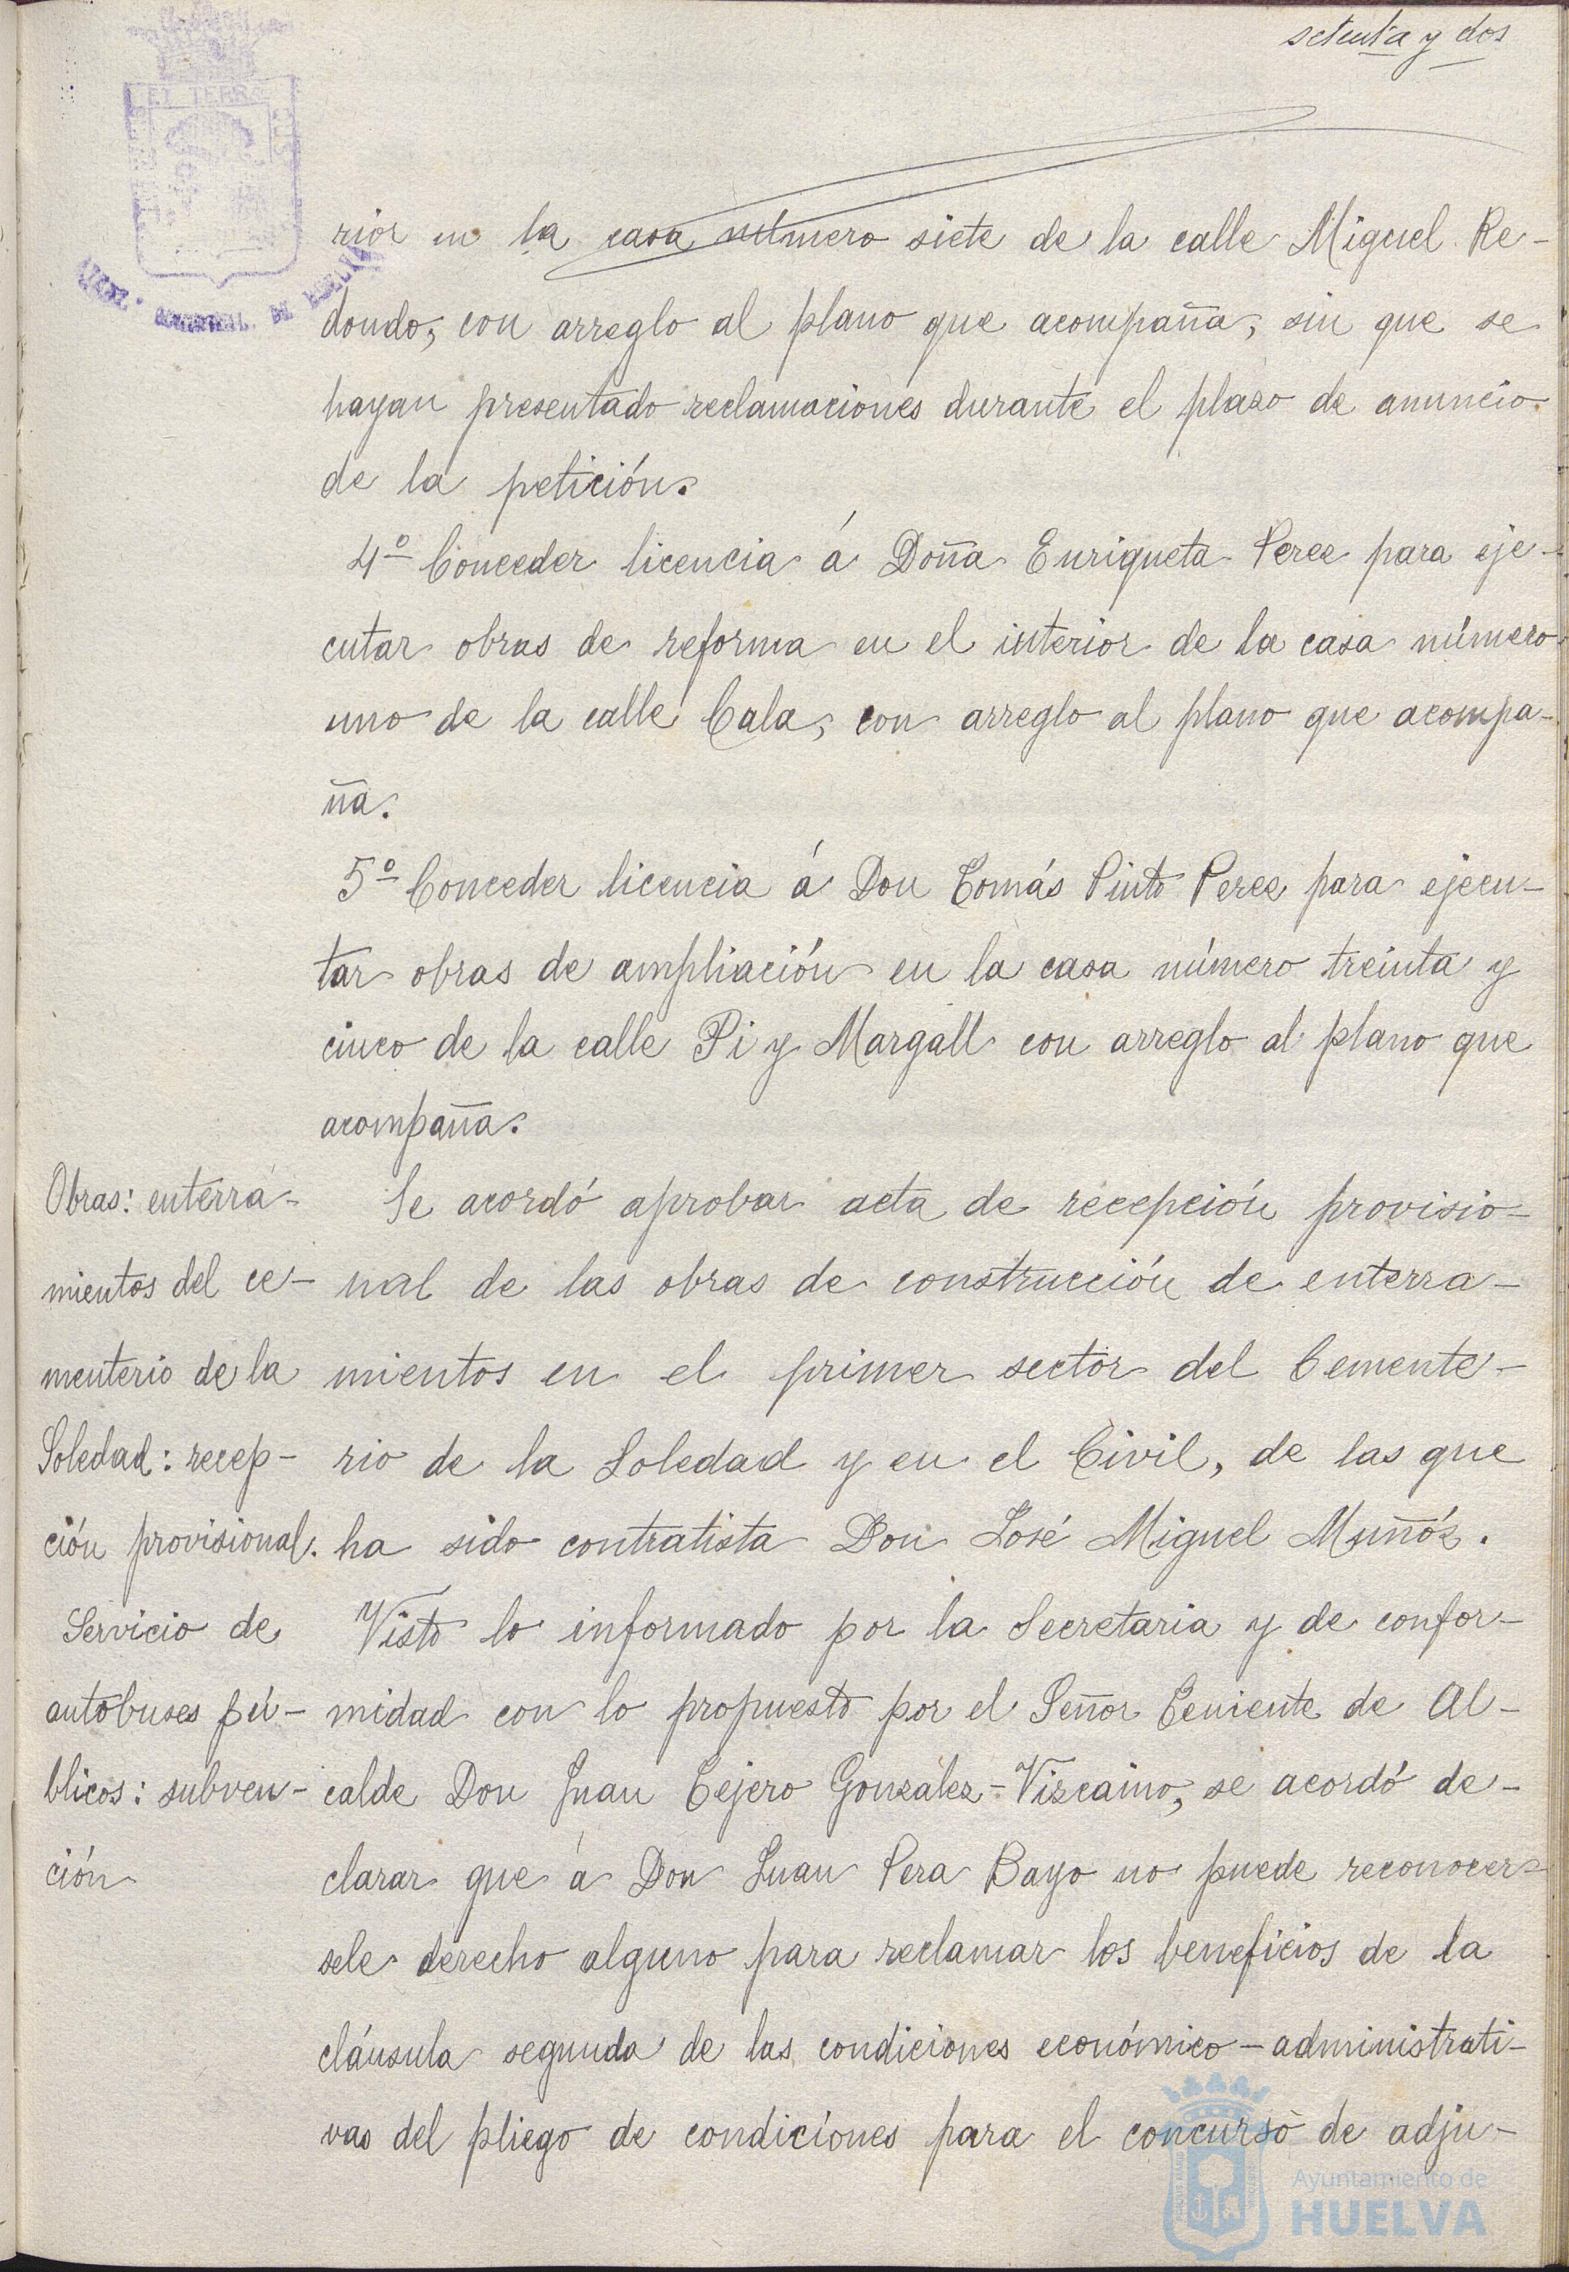 setenta y dos
ET TERRÆ
rior en la casa número siete de la calle Miguel Re-
dondo, con arreglo al plano que acompaña, sin que se
hayan presentado reclamaciones durante el plazo de anuncio
de la petición.
4º Conceder licencia á Doña Enriqueta Perez para eje-
cutar obras de reforma en el interior de la casa número
uno de la calle Cala, con arreglo al plano que acompa-
ña.
5º Conceder licencia á Don Tomás Pinto Perez para ejecu-
tar obras de ampliación en la casa número treinta y
cinco de la calle Pi y Margall con arreglo al plano que
acompaña.
Obras: enterra-
mientos del ce-
menterio de la
Soledad: recep-
ción provisional.
Se acordó aprobar acta de recepción provisio-
nal de las obras de construcción de enterra-
mientos en el primer sector del Cemente-
rio de la Soledad y en el Civil, de las que
ha sido contratista Don José Miguel Muñóz.
Servicio de
autobuses pú-
blicos: subven-
ción
Visto lo informado por la Secretaria y de confor-
midad con lo propuesto por el Señor Teniente de Al-
calde Don Juan Tejero González-Vizcaino, se acordó de-
clarar que á Don Juan Pera Bayo no puede reconocer-
sele derecho alguno para reclamar los beneficios de la
cláusula segunda de las condiciones económico-administrati-
vas del pliego de condiciones para el concurso de adju-
Ayuntamiento de
HUELVA